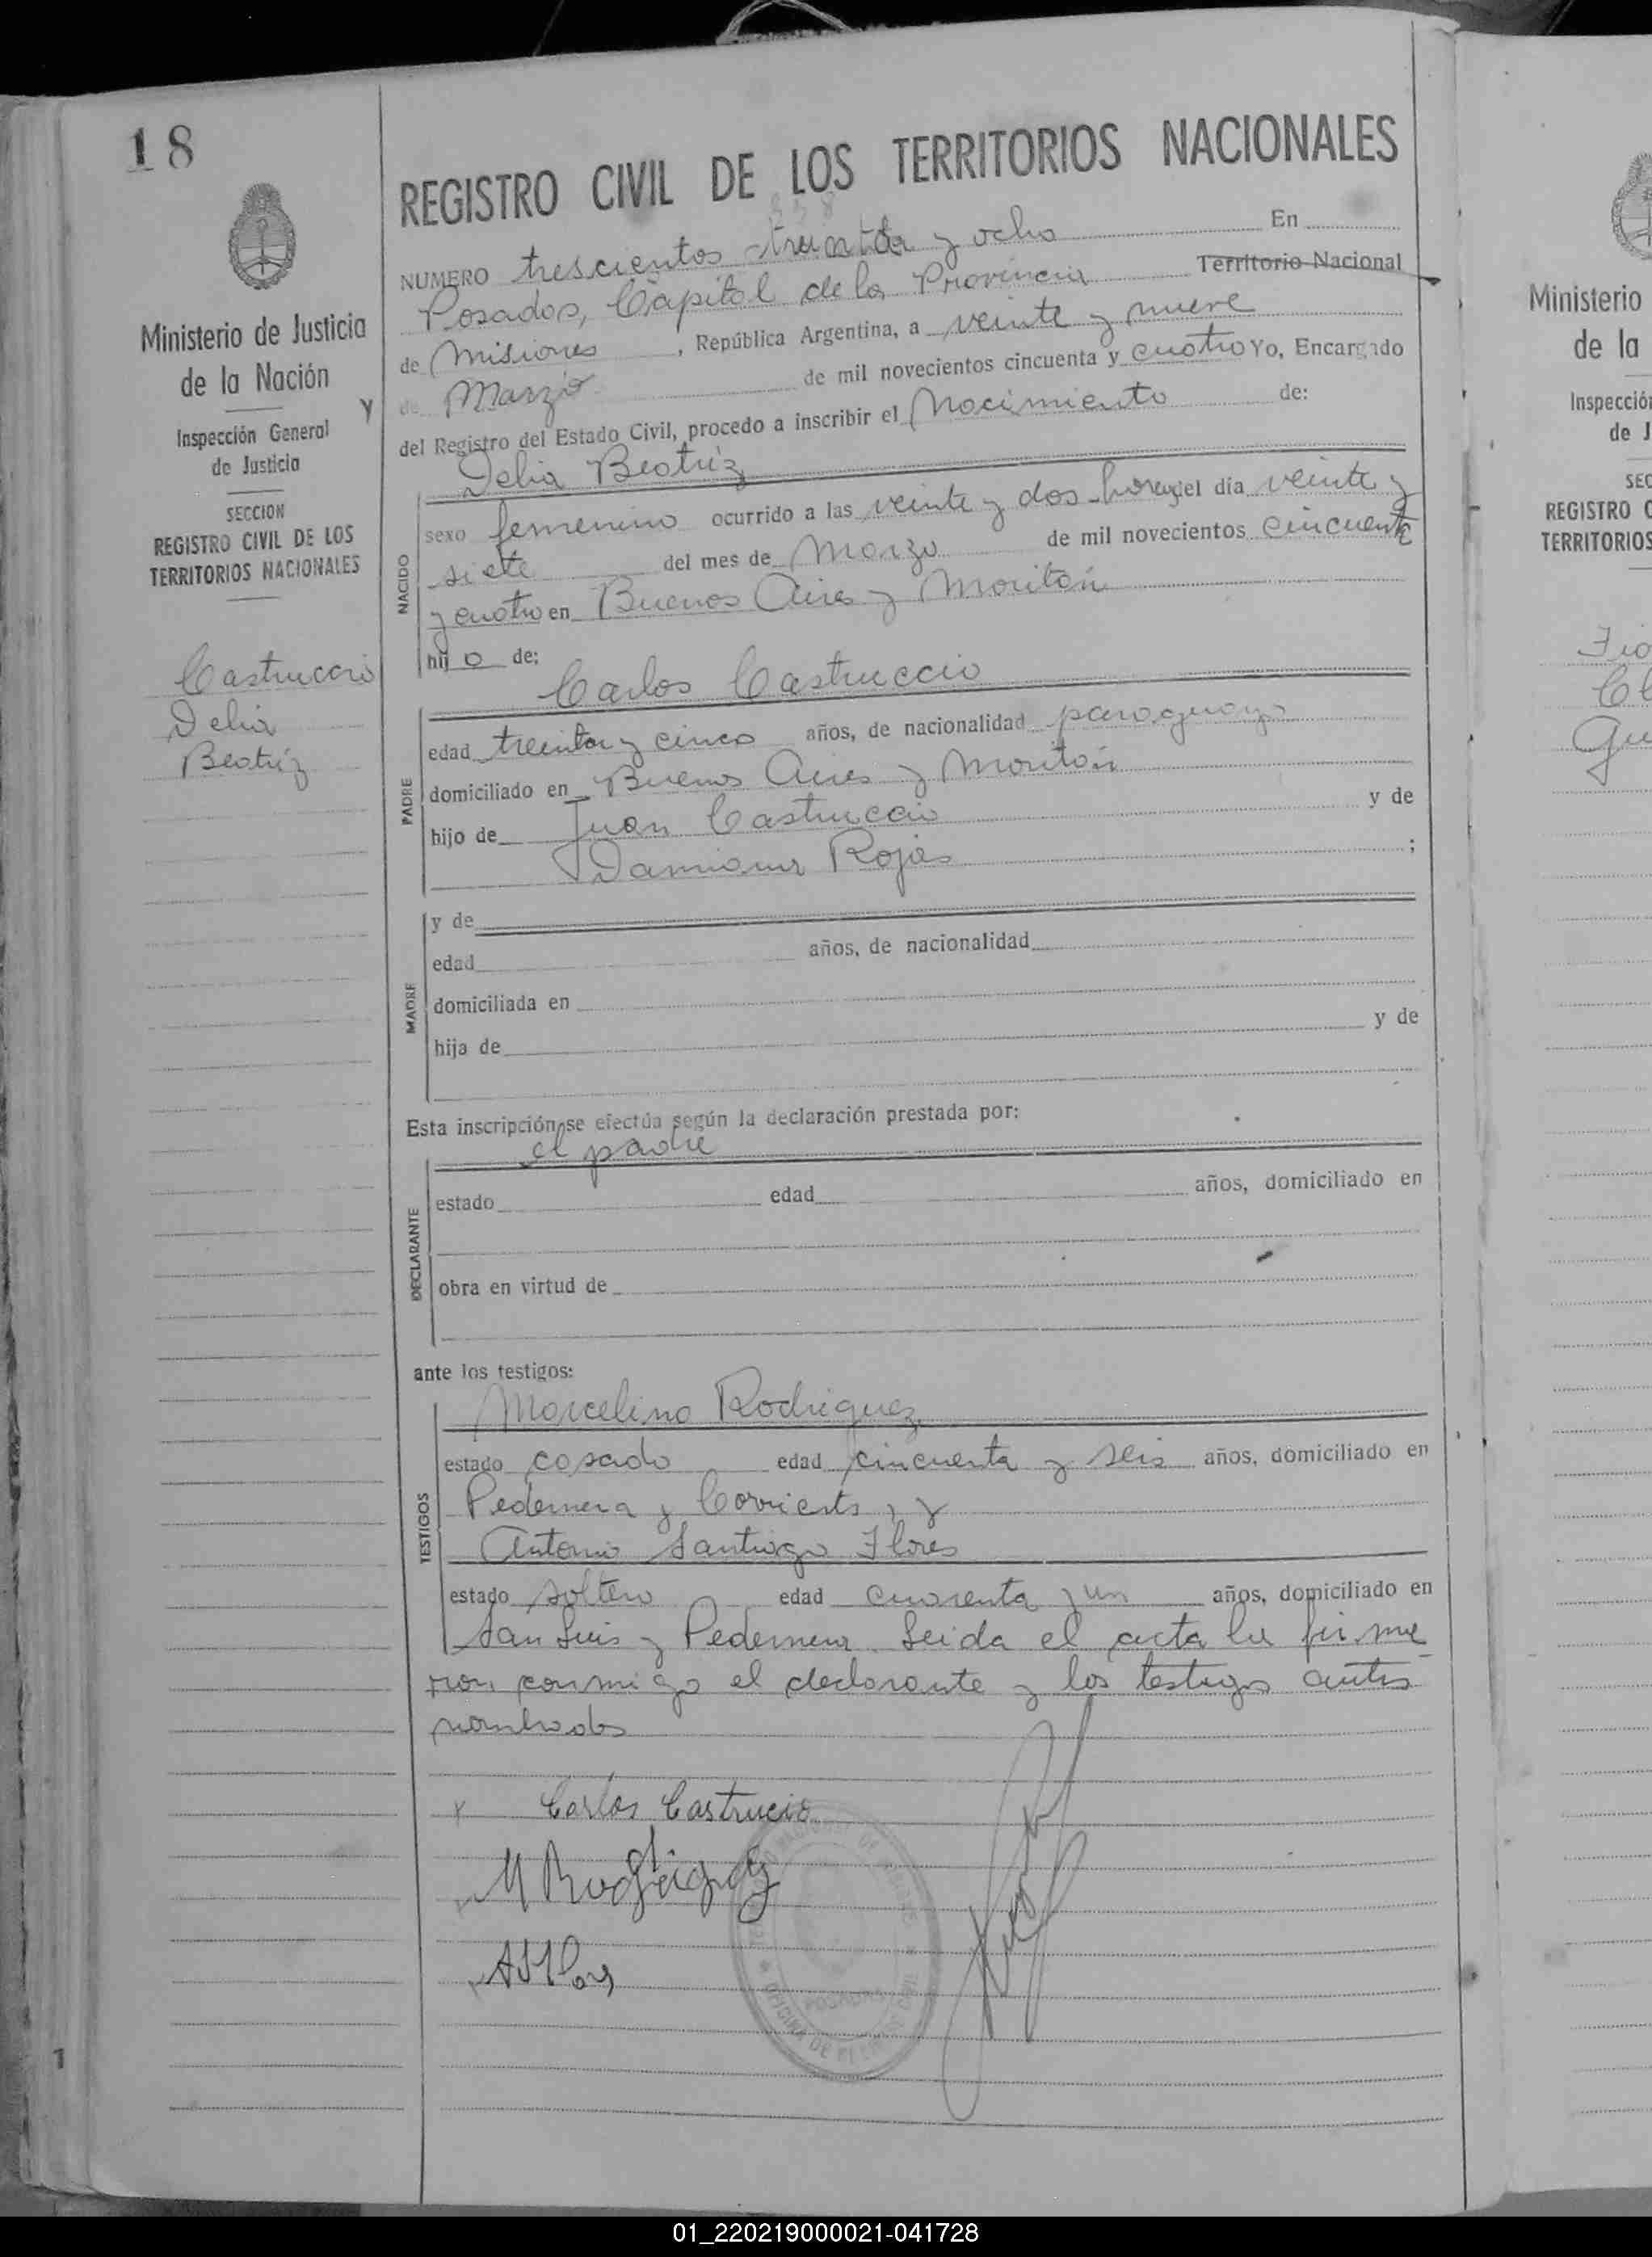 18
REGISTRO CIVIL DE LOS TERRITORIOS NACIONALES
Ministerio de Justicia
de la Nación
Inspección General
de Justicia
SECCION
REGISTRO CIVIL DE LOS
TERRITORIOS NACIONALES
Castruccio
Delia
Beatriz
338
NUMERO trescientos treinta y ocho En
Posadas, Capital de la Provincia Territorio Nacional
de Misiones, República Argentina, a veinte y nueve
de Marzo de mil novecientos cincuenta y cuatro Yo, Encargado
y
del Registro del Estado Civil, procedo a inscribir el Nacimiento de:
Delia Beatriz
NACIDO
sexo femenino ocurrido a las veinte y dos horas del día veinte y
siete del mes de Marzo de mil novecientos cincuenta
y cuatro en Buenos Aires y
hij o de:
Carlos Castruccio
PADRE
edad treinta y cinco años, de nacionalidad paraguayo
domiciliado en Buenos Aires y
hijo de Juan Castruccio y de
Damiana Rojas ;
MADRE
y de
edad años, de nacionalidad
domiciliada en
hija de y de
Esta inscripción se efectúa según la declaración prestada por:
el padre
DECLARANTE
estado edad años, domiciliado en
obra en virtud de
ante los testigos:
TESTIGOS
Marcelino Rodriguez
estado casado edad cincuenta y seis años, domiciliado en
Pedernera y Corrientes, y
Antonio Santiago Flores
estado soltero edad cuarenta y un años, domiciliado en
San Luis y Pedernera. Leida el acta la firma
ron conmigo el declarante y los testigos antes
nombrados
x Carlos Castrucio
M Rodriguez
POSADAS
1
Ministerio
de la
Inspección
de J
SEC
REGISTRO C
TERRITORIOS
01_220219000021-041728